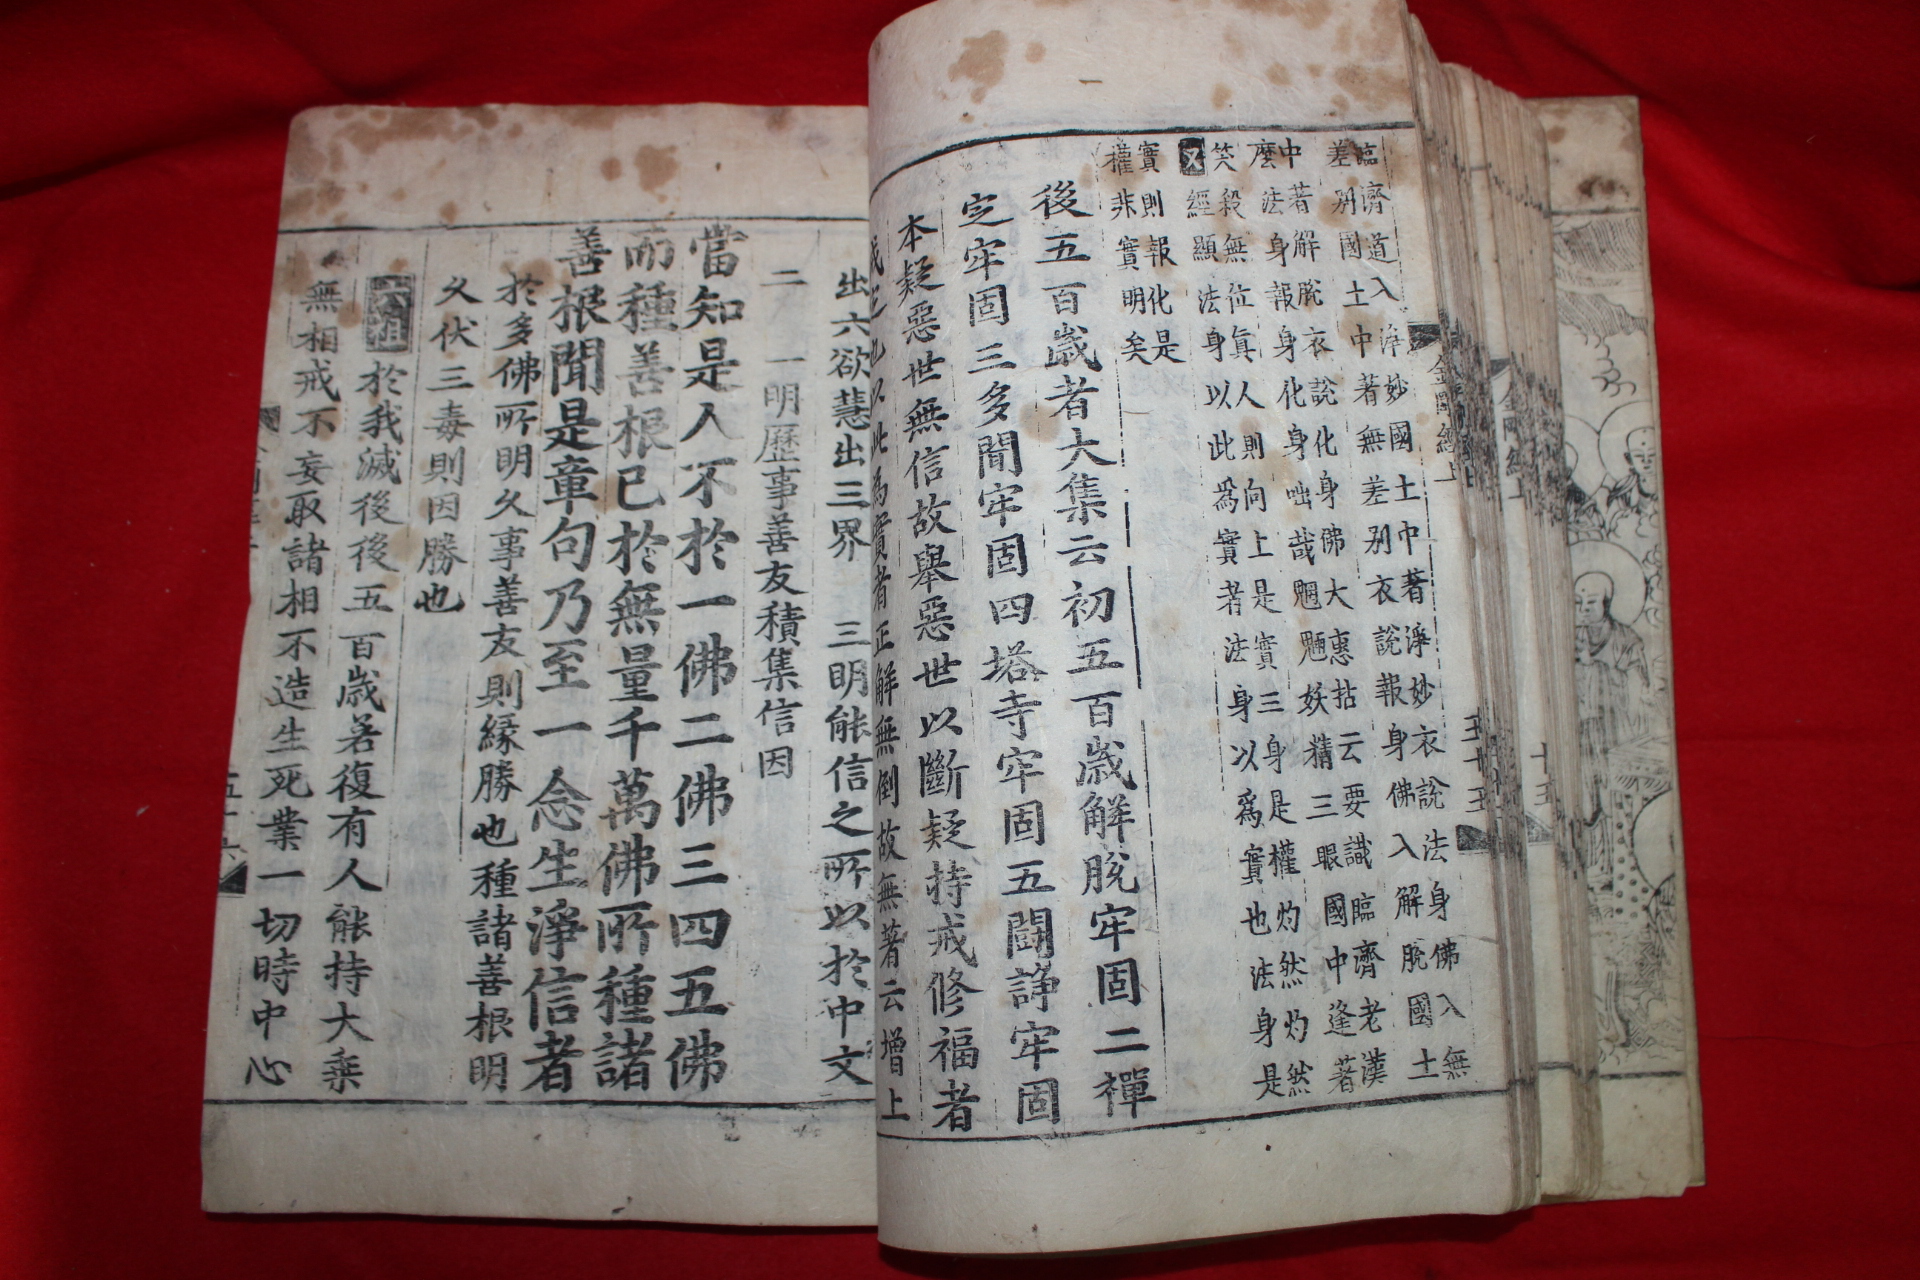 臨濟道入淨妙國土中著淨妙衣說法身佛入無
差別國土中著無差別衣說報身佛入解脫國土
中著解脫衣說化身佛大惠拈云要識臨濟老漢
麽法身報身化身咄哉魍魎妖精三眼國中逢著
笑殺無位眞人則向上是實三身是權灼然灼然
又經顯法身以此爲實者法身以爲實也法身是
實則報化是
權非實明矣
後五百歲者大集云初五百歲解脫牢固二禪
定牢固三多聞牢固四塔寺牢固五鬪諍牢固
本疑惡世無信故擧惡世以斷疑持戒修福者
也以此爲實者正解無倒故無著云增上
金剛經上
五十五
金剛經上
十五
出六欲慧出三界 三明能信之所以於中文
二 一明歷事善友積集信因
當知是人不於一佛二佛三四五佛
而種善根已於無量千萬佛所種諸
善根聞是章句乃至一念生淨信者
於多佛所明久事善友則緣勝也種諸善根明
久伏三毒則因勝也
六祖於我滅後後五百歲若復有人能持大乘
無相戒不妄取諸相不造生死業一切時中心
五十六